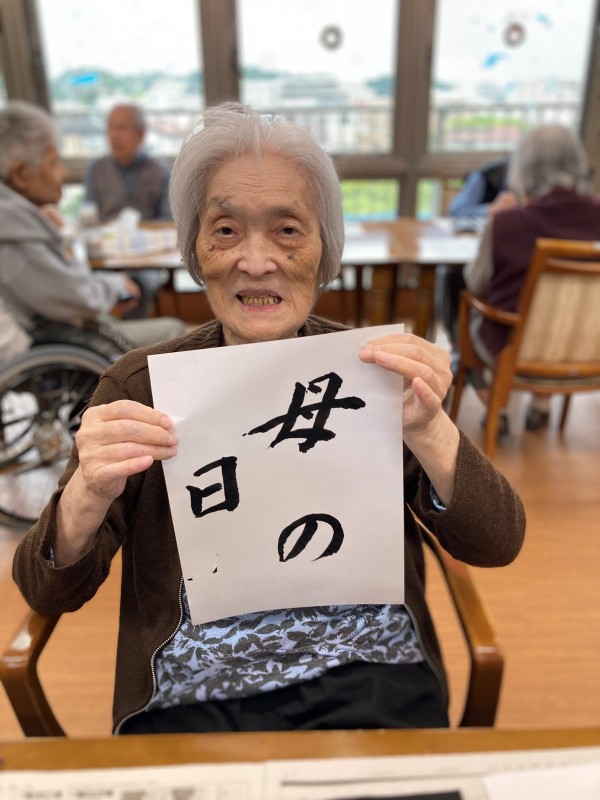 母の
日